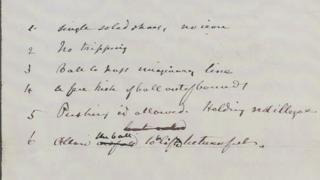 1 single soled shoes, no iron
2 No tripping
3 Ball to pass imaginary line
4 A free kick if ball out of bounds
5 Pushing is allowed. Holding not illegal
6 Allow the ball to be lifted between fds.